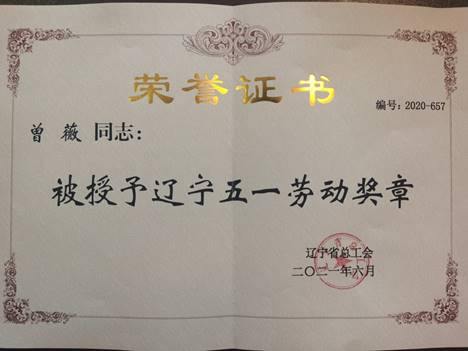 荣誉证书
编号：2020-657
曾薇同志：
被授予辽宁五一劳动奖章
辽宁省总工会
二〇二一年六月